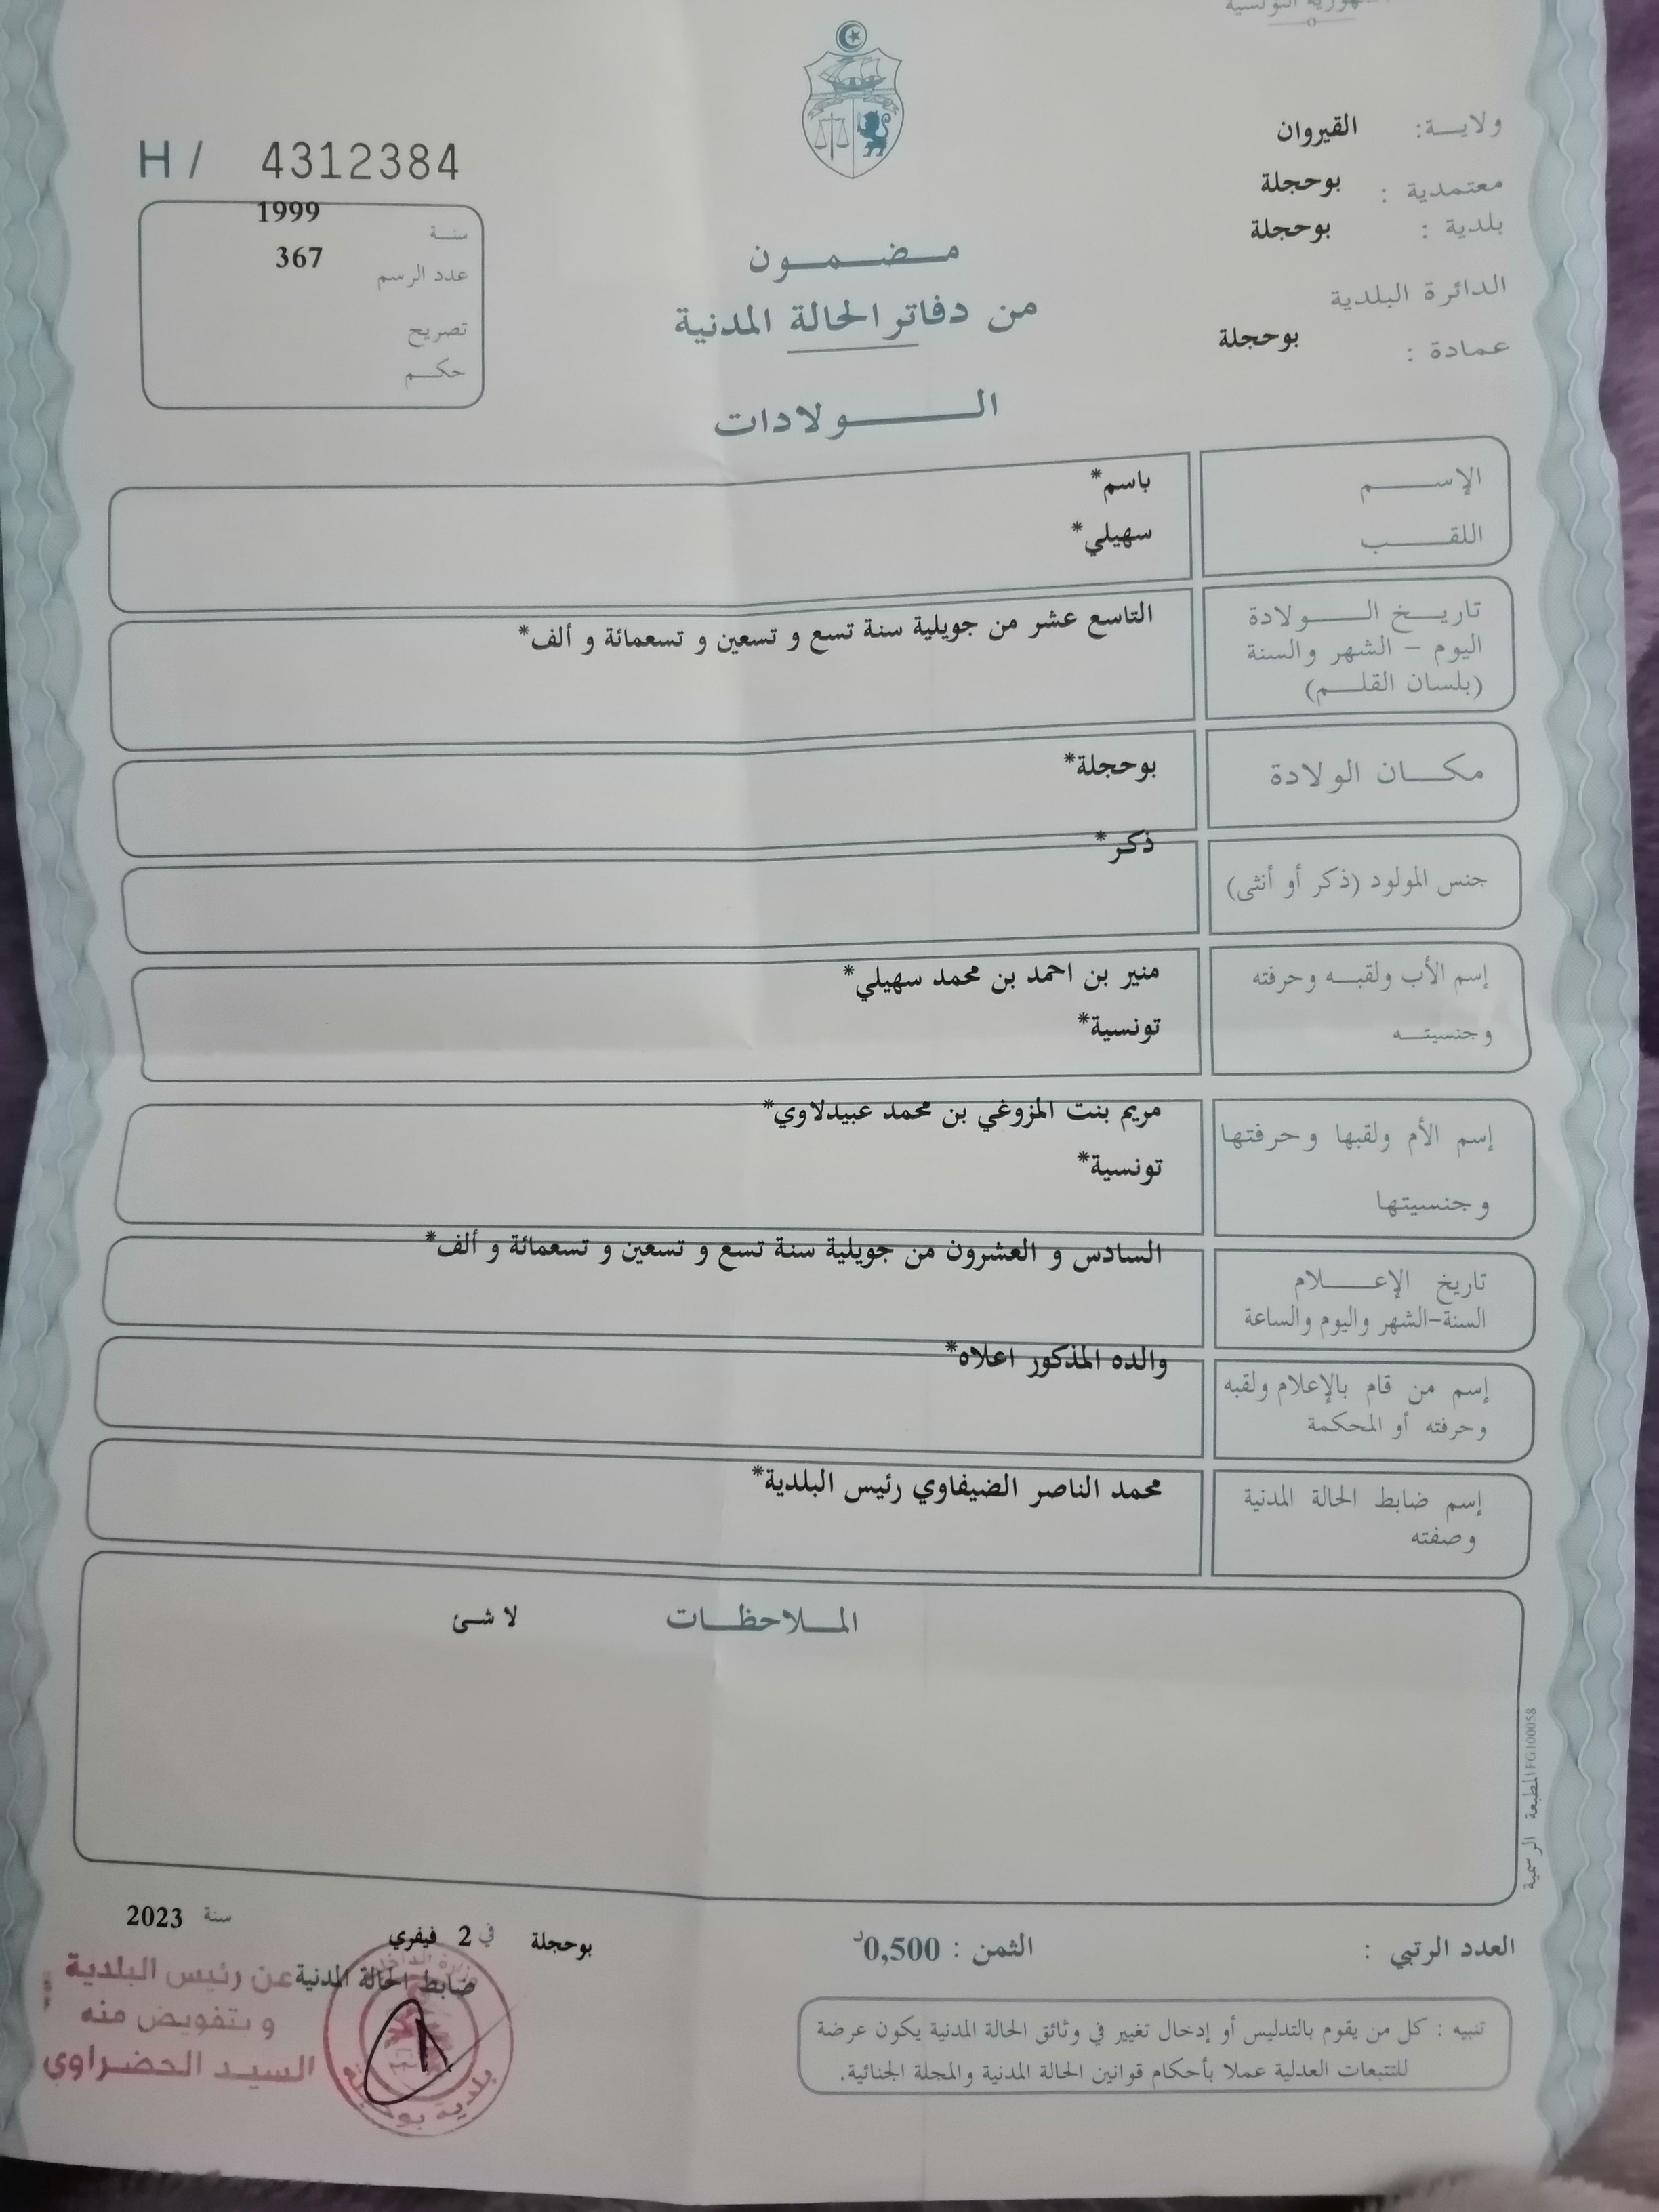 الجمهورية التونسية
ولاية: القيروان
معتمدية : بوحجلة
بلدية : بوحجلة
الدائرة البلدية
عمادة : بوحجلة
H / 4312384
سنة 1999
عدد الرسم 367
تصريح
حكم
مضمون
من دفاتر الحالة المدنية
الولادات
الإسم باسم*
اللقب سهيلي*
تاريخ الولادة التاسع عشر من جويلية سنة تسع و تسعين و تسعمائة و ألف*
اليوم - الشهر والسنة
(بلسان القلم)
مكان الولادة بوحجلة*
جنس المولود (ذكر أو أنثى) ذكر*
إسم الأب ولقبه وحرفته منير بن احمد بن محمد سهيلي*
وجنسيته تونسية*
إسم الأم ولقبها وحرفتها مريم بنت المزوغي بن محمد عبيدلاوي*
وجنسيتها تونسية*
تاريخ الإعلام السادس و العشرون من جويلية سنة تسع و تسعين و تسعمائة و ألف*
السنة-الشهر واليوم والساعة
إسم من قام بالإعلام ولقبه والده المذكور اعلاه*
وحرفته أو المحكمة
إسم ضابط الحالة المدنية محمد الناصر الضيفاوي رئيس البلدية*
وصفته
الملاحظات لا شئ
المطبعة الرسمية FG100058
العدد الرتبي : الثمن : 0,500د
بوحجلة في 2 فيفري سنة 2023
ضابط الحالة المدنية
عن رئيس البلدية
و بتفويض منه
السيد الخضراوي
وزارة الداخلية
بلدية بوحجلة
تنبيه : كل من يقوم بالتدليس أو إدخال تغيير في وثائق الحالة المدنية يكون عرضة
للتتبعات العدلية عملا بأحكام قوانين الحالة المدنية والمجلة الجنائية.